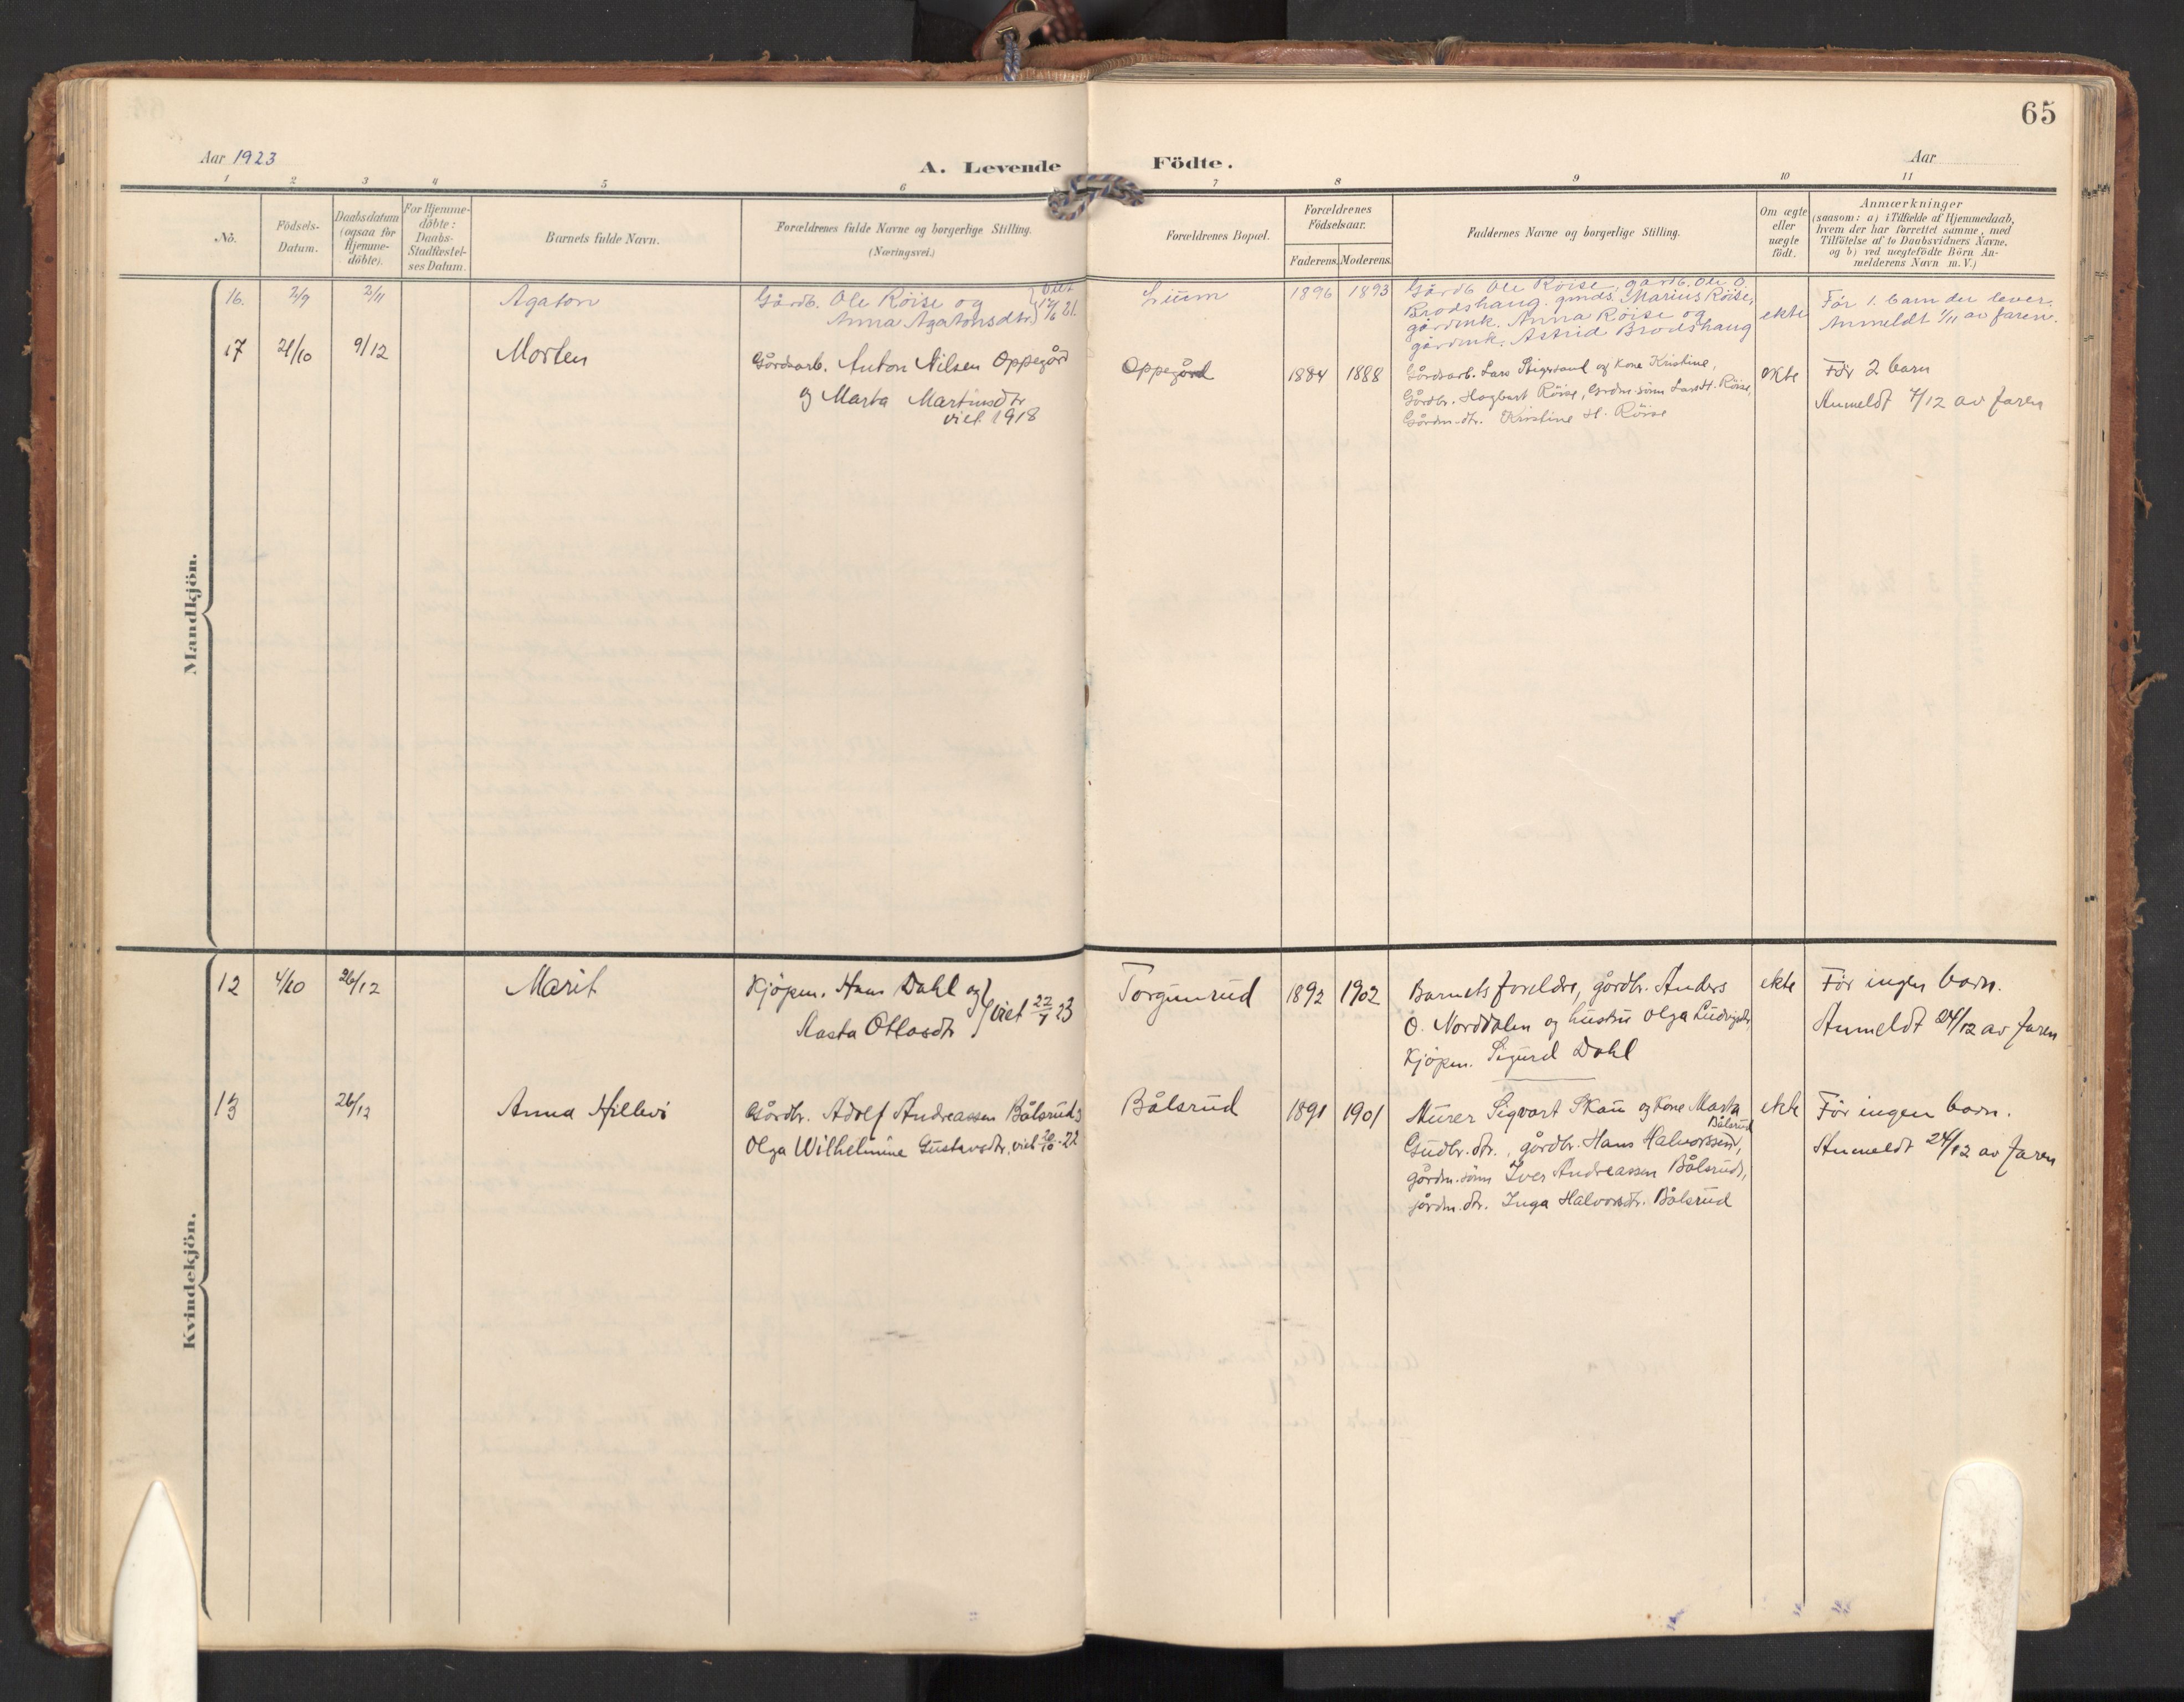 65
Aar 1923
A. Levende Födte.
Aar
1 2 3 4 5 6 7 8 9 10 11
No.
Födsels-
Datum.
Daabsdatum
(ogsaa for
Hjemme-
döbte).
For Hjemme-
döbte:
Daabs-
Stadfæstel-
ses Datum.
Barnets fulde Navn.
Forældrenes fulde Navne og borgerlige Stilling.
(Næringsvei.)
Forældrenes Bopæl.
Forældrenes
Födselsaar.
Faderens. Moderens.
Faddernes Navne og borgerlige Stilling.
Om ægte
eller
uægte
födt.
Anmærkninger
(saasom: a) i Tilfælde af Hjemmedaab,
hvem der har forrettet samme, med
Tilföielse af to Daabsvidners Navne,
og b) ved uægtefödte Börn An-
melderens Navn m. V.)
Mandkjön.
16. 2/9 2/11
Agaton
Gårdb. Ole Röise og
Anna Agatonsdtr.
viet
17/6 21.
Lium
1896 1893
Gårdb Ole Röise, gårdb. Ole O.
Brodshaug. gmds. Marius Röise,
gårdmk. Anna Röise og
gårdmk. Astrid Brodshaug
ekte
Før 1. barn der lever.
Anmeldt 1/11 av faren.
17 21/10 9/12
Morten
Gårdsarb. Anton Nilsen Oppegård
og Marta Martinsdtr
viet 1918
Oppegård
1884 1888
Gårdsarb. Lars Stigersand og kone Kristine,
Gårdbr. Hagbart Röise, Grdm.sönn Lars H. Röise,
Gårdm.dtr. Kristine H. Röise
ekte
Før 2 barn
Anmeldt 7/12 av faren
Kvindekjön.
12 4/10 26/12
Marit
Kjöpm. Hans Dahl og
Marta Ottosdtr
viet 22/7 23
Torgunrud
1892 1902
Barnets foreldre, gårdbr. Anders
O. Norddalen og hustru Olga Ludvigsdtr,
Kjöpm. Sigurd Dahl
ekte
Før ingen barn.
Anmeldt 24/12 av faren
13 26/12
Anna Hillevi
Gårdbr. Adolf Andreassen Bålsrud og
Olga Wilhelmine Gustavsdtr, viet 20/10-22
Bålsrud
1891 1901
Murer Sigvart Skau og kone Marta
Gudbr.dtr., gårdbr. Hans Halvorssen Bålsrud,
gårdm.sönn Iver Andreassen Bålsrud,
gårdm.dtr. Inga Halvorsdtr. Bålsrud
ekte
Før ingen barn.
Anmeldt 24/12 av faren